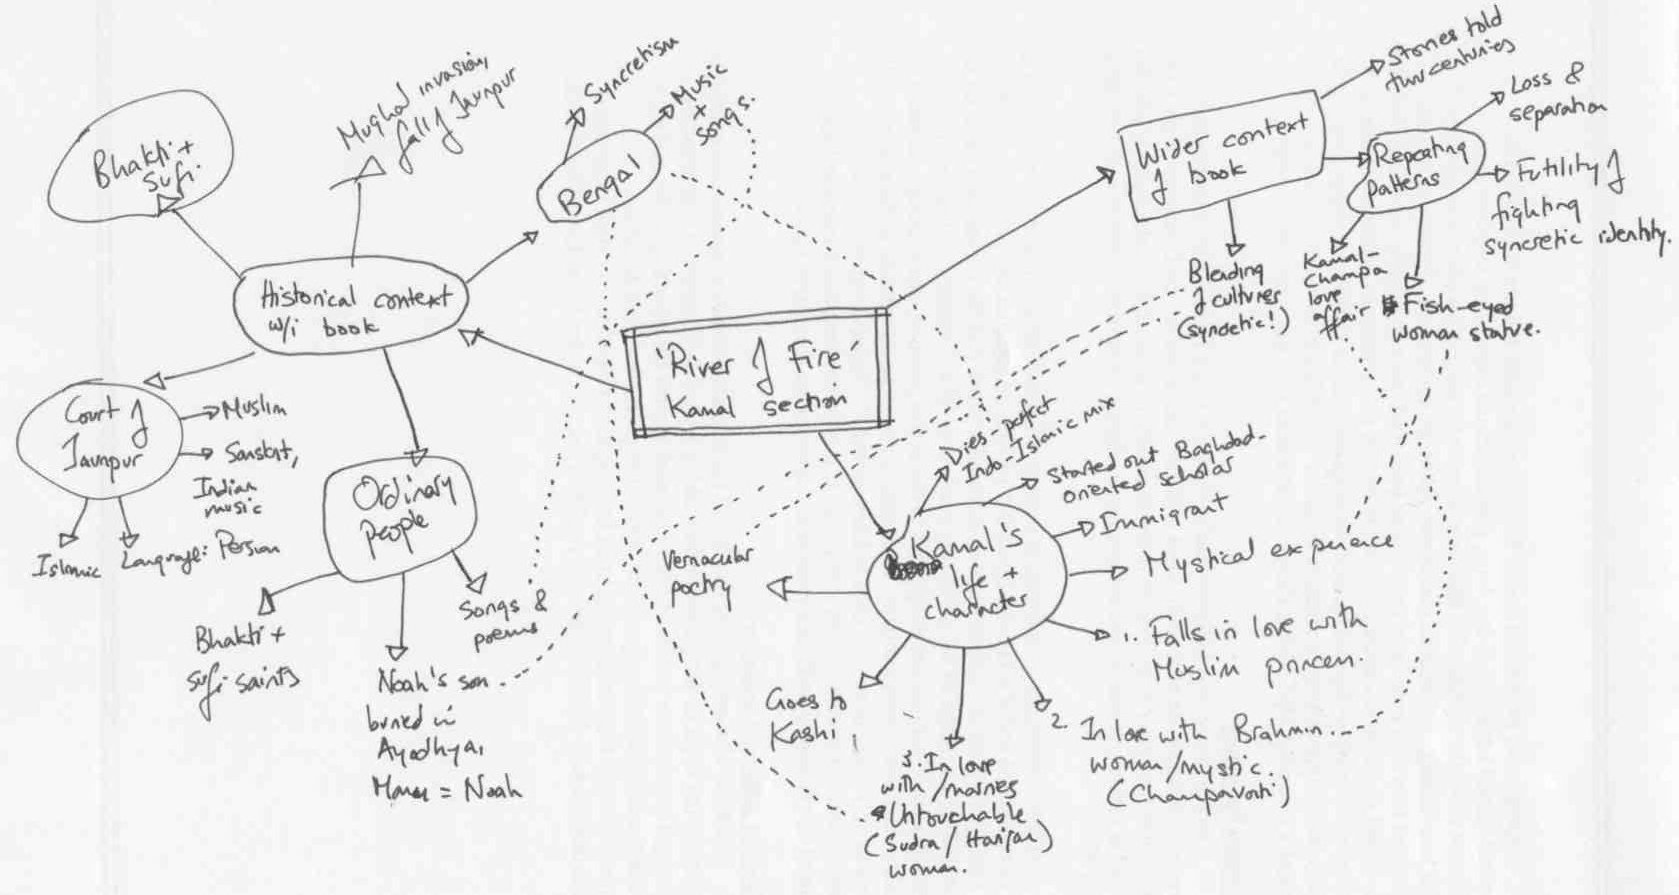 Bhakti +
sufi.
Mughal invasion,
fall of Jaunpur
Syncretism
Music
+
songs.
Bengal
Historical context
w/i book
Court of
Jaunpur
Muslim
Sanskrit,
Indian
music
Islamic
Language: Persian
Ordinary
People
Bhakti +
sufi saints
Noah's son
buried in
Ayodhya,
= Noah
Songs &
poems
'River of Fire'
Kamal section
Wider context
of book
Stories told
thru centuries
Repeating
patterns
Loss &
separation
Futility of
fighting
syncretic identity.
Blending
of cultures
(syncretic!)
Kamal-
Champa
love
affair
Fish-eyed
woman statue.
Kamal's
life +
character
Dies - perfect
Indo-Islamic mix
Started out Baghdad-
oriented scholar
Immigrant
Mystical experience
1. Falls in love with
Muslim princess.
2. In love with Brahmin
woman/mystic.
(Champavati)
3. In love
with/marries
Untouchable
(Sudra/Harijan)
woman.
Goes to
Kashi
Vernacular
poetry